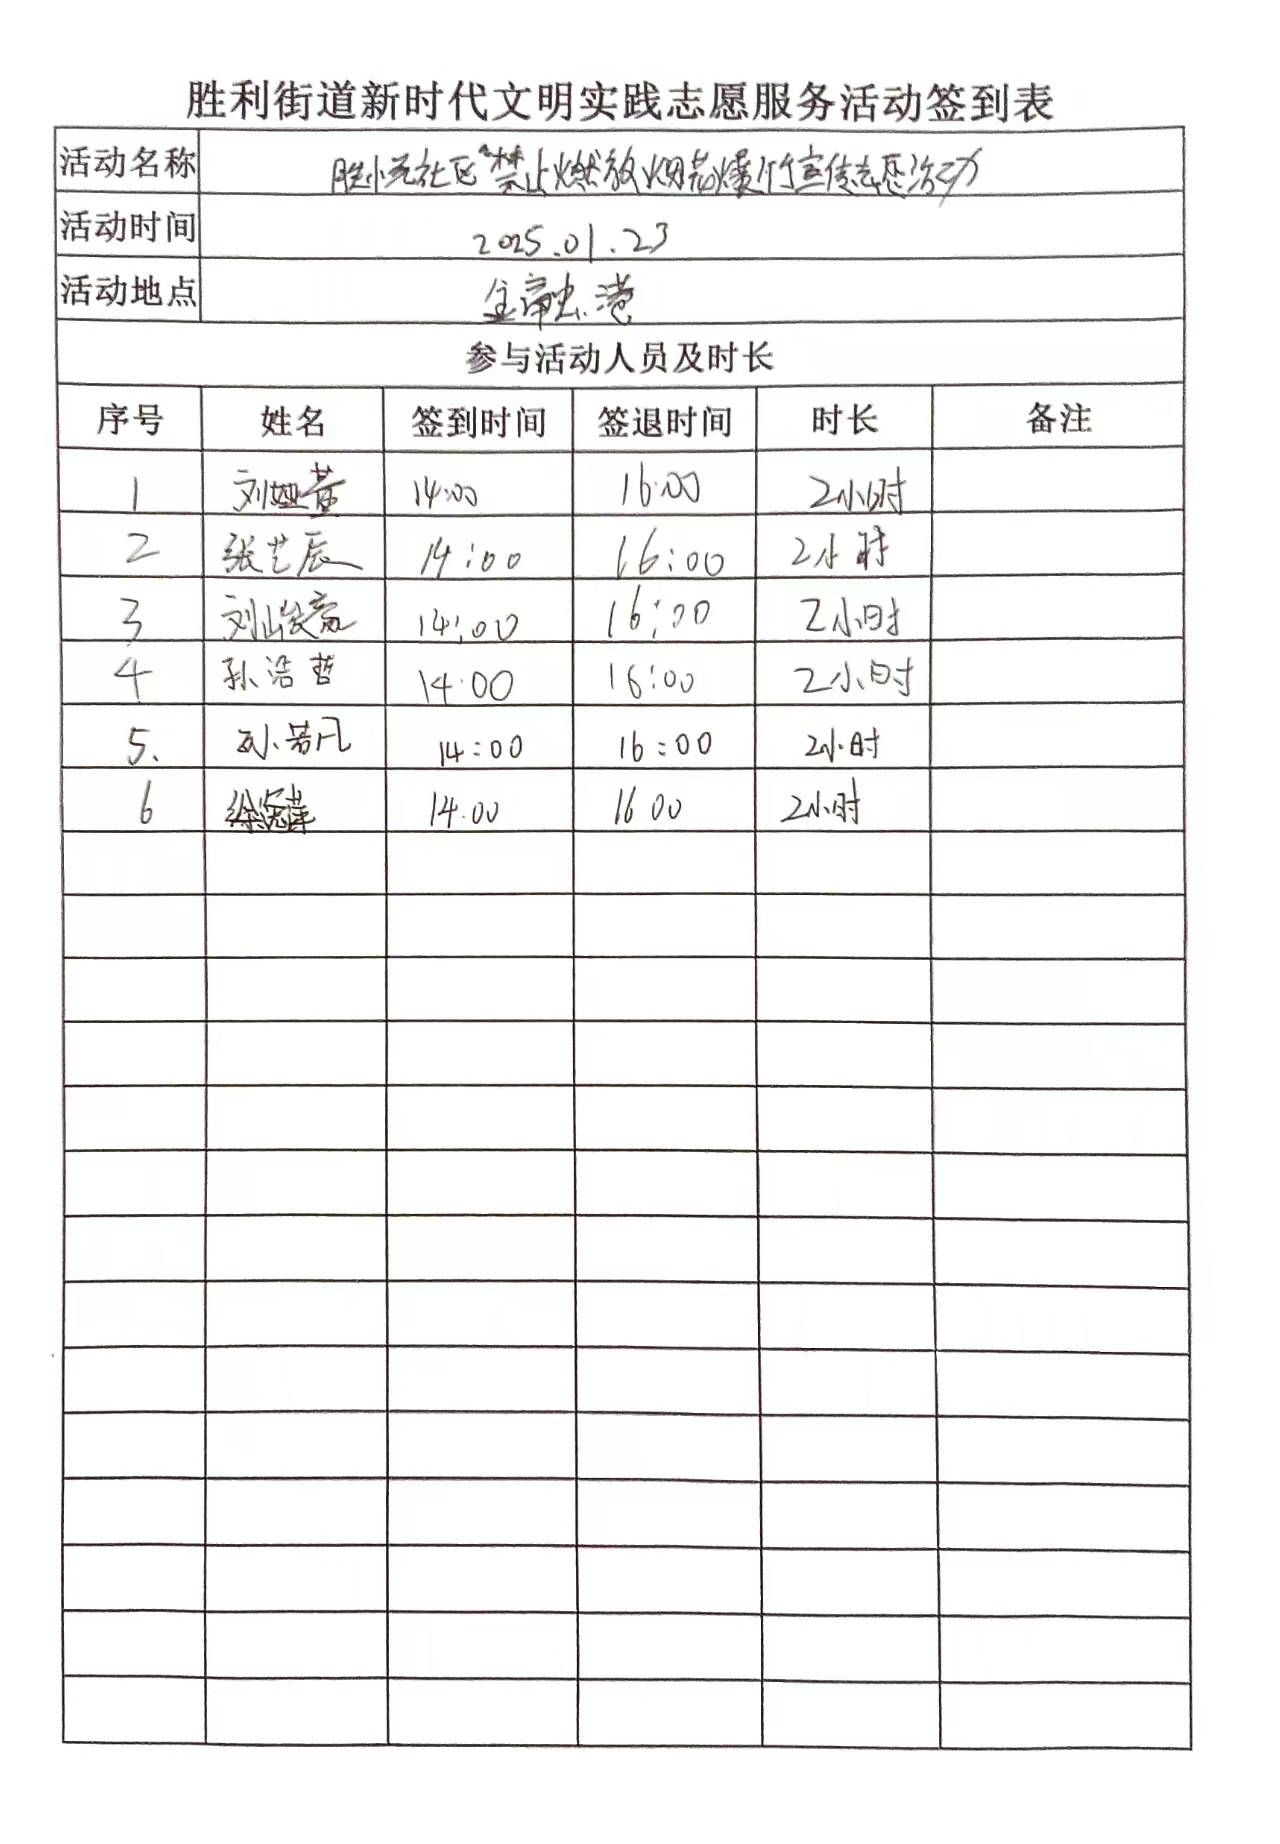 胜利街道新时代文明实践志愿服务活动签到表
活动名称 社区“禁止燃放烟花爆竹宣传志愿活动
活动时间 2025.01.23
活动地点 金融港
参与活动人员及时长
序号 姓名 签到时间 签退时间 时长 备注
1 刘娅萱 14:00 16:00 2小时
2 张艺辰 14:00 16:00 2小时
3 刘峻 14:00 16:00 2小时
4 孙浩哲 14:00 16:00 2小时
5. 孙若凡 14:00 16:00 2小时
6 徐 14.00 16 00 2小时